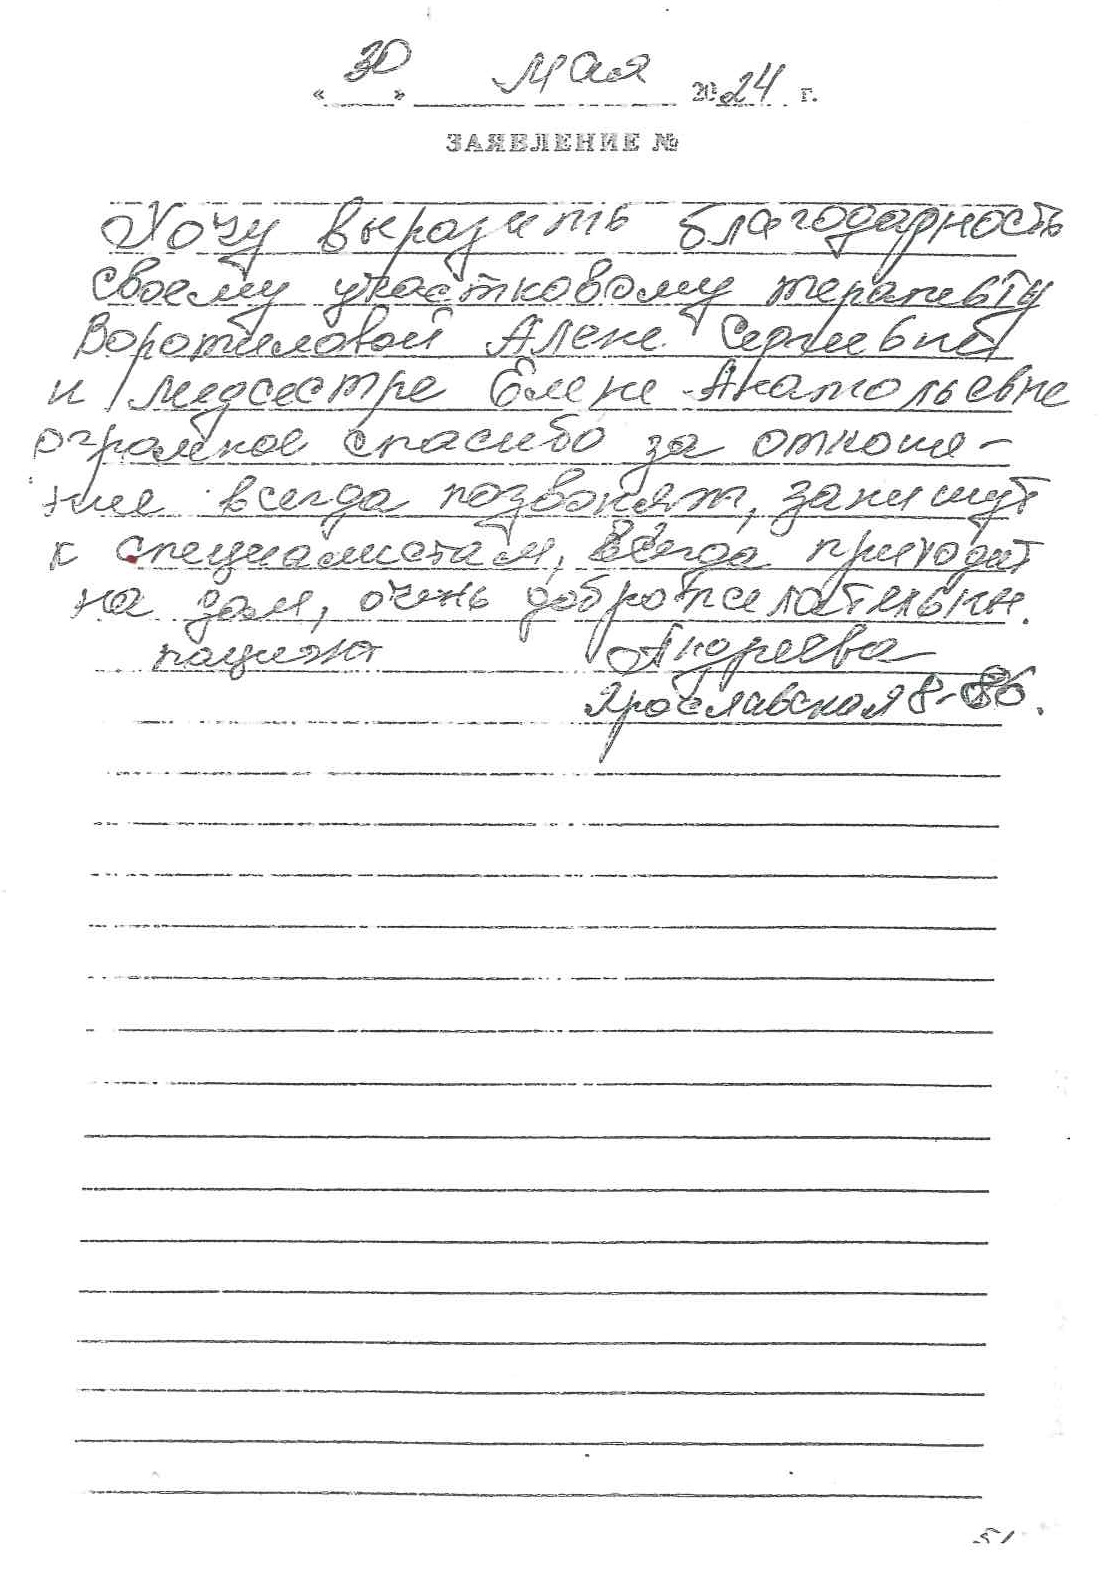 « 30 » мая 2024 г.
ЗАЯВЛЕНИЕ №
Хочу выразить благодарность
своему участковому терапевту
Воротиловой Алене Сергиевне
и медсестре Елене Анатольевне
огромное спасибо за отноше-
ние всегда позвонят, запишут
к специалистам, всегда приходят
на дом, очень доброжелательны.
пациент Андреева
Ярославская 8-86.